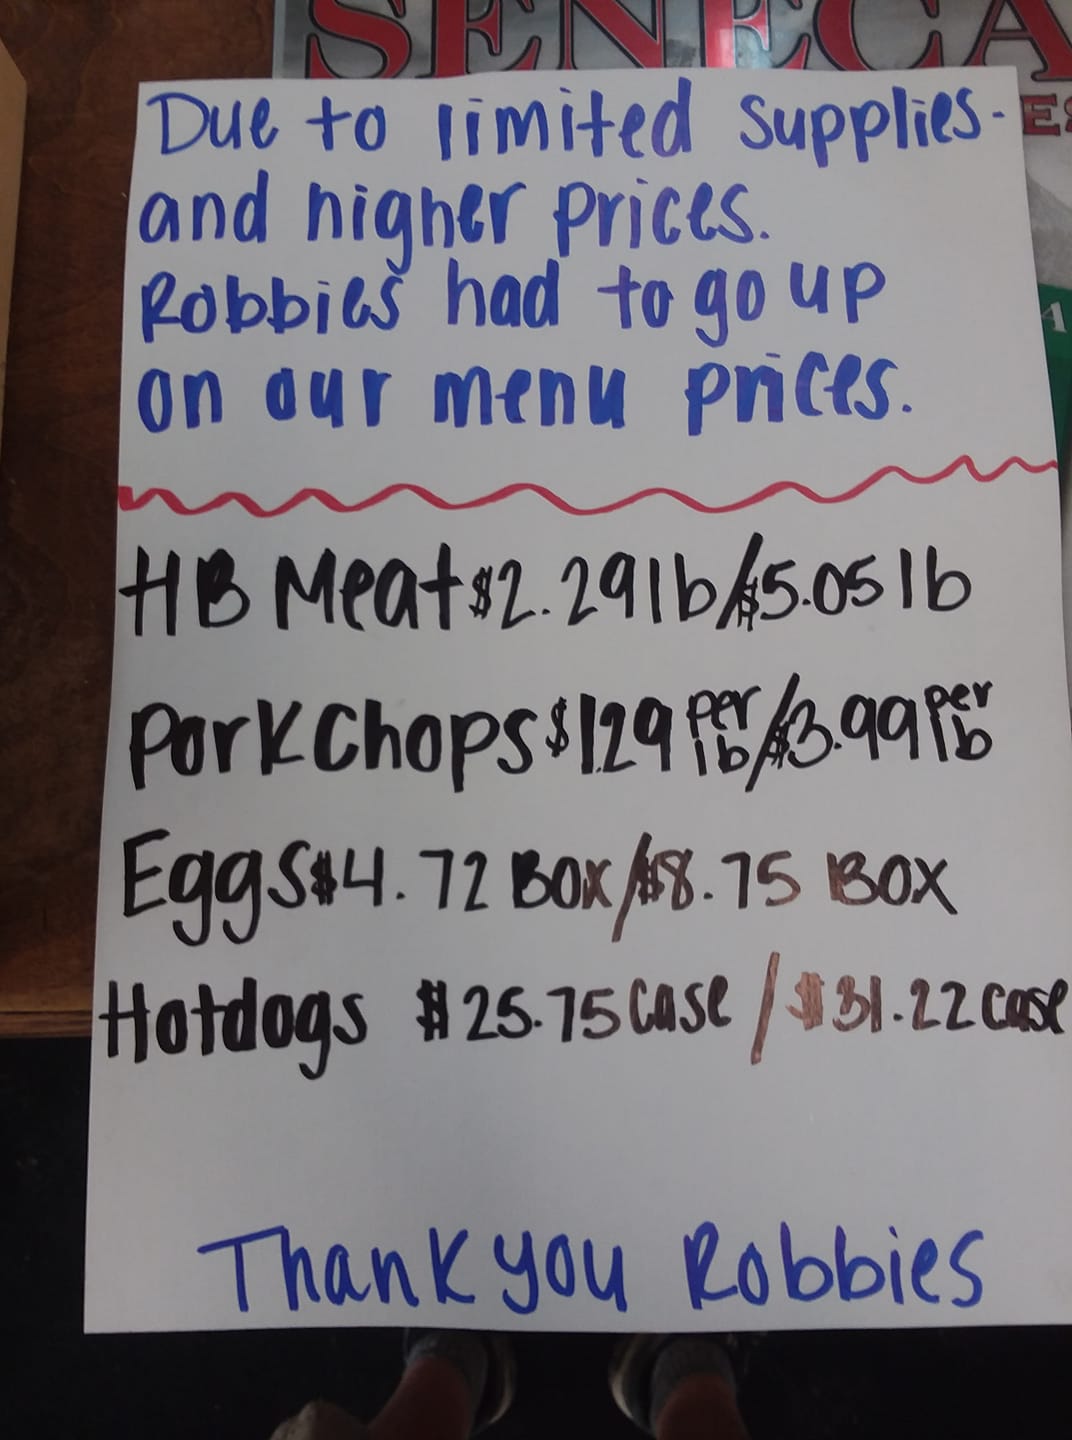 SENECA
ES
A
Due to limited supplies-
and higher prices.
Robbies had to go up
on our menu prices.
HB Meat $2.29 lb/$5.05 lb
Pork Chops $1.29 per lb/$3.99 per lb
Eggs $4.72 Box/$8.75 Box
Hotdogs $25.75 case/$31.22 case
Thank you Robbies